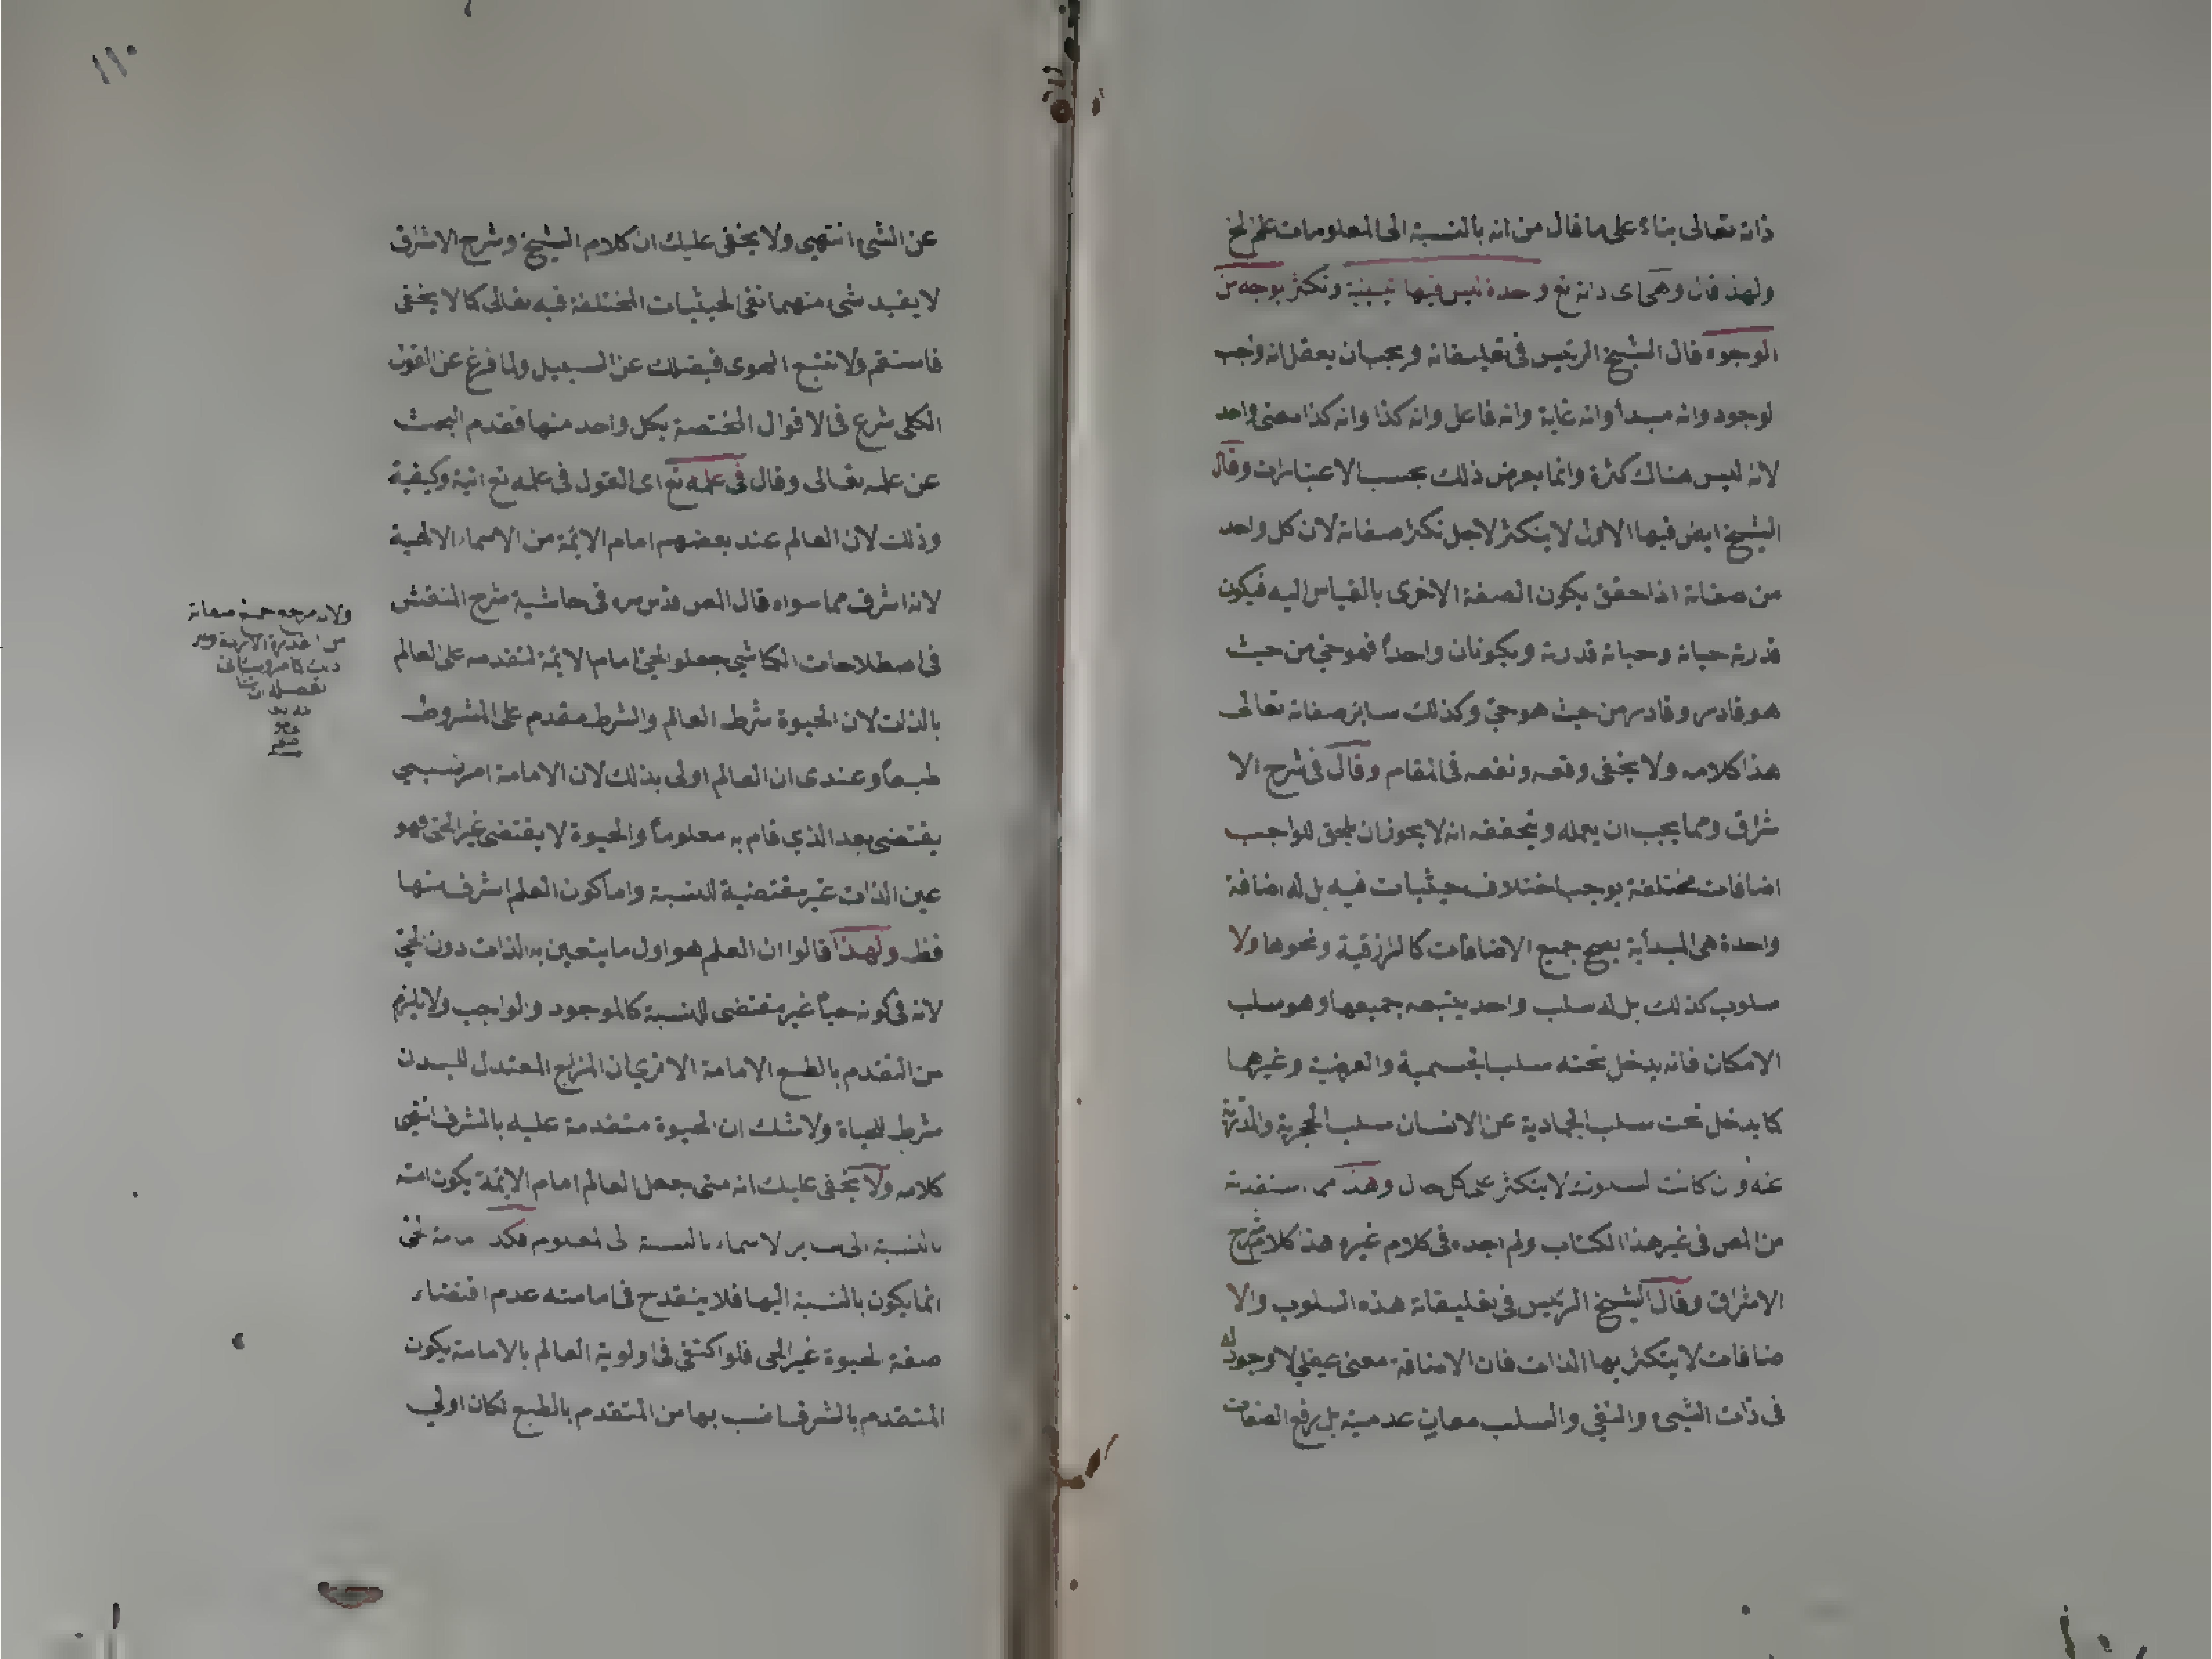 ذاته تعالى بناء على ما قال من انه بالنسبة الى المعلومات علم الخ
ولهذا قال وهي اى ذاته تع وحدة ليس فيها وتكثر بوجه من
الوجوه قال الشيخ الرئيس فى تعليقاته و يجب ان يعقل انه واجب
لوجود وانه مبدأ وانه غاية وانه فاعل وانه كذا وانه كذا معنى واحد
لانه ليس هناك كثرة وانما يعرض ذلك بحسب الاعتبارات وقال
الشيخ ايض فيها الاول لا يتكثر لاجل تكثر صفاته لان كل واحد
من صفاته اذا حقق يكون الصفة الاخرى بالقياس اليه فيكون
قدرته حياته وحياته قدرته ويكونان واحداً فهو حي من حيث
هو قادر وقادر من حيث هو حي وكذلك ساير صفاته تعالى
هذا كلامه ولا يخفى وقعه ونفعه فى المقام وقال فى شرح الا
شراق ومما يجب ان يعمله ويتحققه انه لا يجوز ان يلحق الواجب
اضافات مختلفة يوجب اختلاف حيثيات فيه بل له اضافة
واحدة هى المبدأية يصح جميع الاضافات كالرازقية ونحوها ولا
سلوب كذلك بل له سلب واحد يتبعه جميعها وهو سلب
الامكان فانه يدخل تحته سلب الجسمية والعرضية وغيرهما
كا يدخل تحت سلب الجمادية عن الانسان سلب الحجرية والمدرية
عنه وان كانت السلوب لا يتكثر على كل حال وهذا مما استفدته
من المص فى غير هذا الكتاب ولم اجده فى كلام غيره هذا كلام شرح
الاشراق وقال الشيخ الرئيس فى تعليقاته هذه السلوب والا
ضافات لا يتكثر بها الذات فان الاضافة معنى عقلي لا وجود له
فى ذات الشيء والنفي والسلب معان عدمية بل رفع الصفات
١١٠
عن الشىء انتهى ولا يخفى عليك ان كلام الشيخ وشرح الاشراق
لا يفيد شىء منهما نفى الحيثيات المختلفة فيه تعالى كا لا يخفى
فاستقم ولا تتبع الهوى فيضلك عن السبيل ولما فرغ عن القول
الكلى شرع فى الاقوال المختصة بكل واحد منها فقدم البحث
عن علمه تعالى وقال فى علمه تع اى القول فى علمه تع انية وكيفية
وذلك لان العالم عند بعضهم امام الائمة من الاسماء الالهية
لانه اشرف مما سواه قال المص قدس سره فى حاشية شرح المنقش
فى اصطلاحات الكاشي جعلوا الحي امام الائمة لتقدمه على العالم
بالذات لان الحيوة شرط العالم والشرط مقدم على المشروط
طبعاً وعندى ان العالم اولى بذلك لان الامامة امر نسبي
يقتضى بعد الذي قام به معلوماً والحيوة لا يقتضى غير الحى فهو
عين الذات غير مقتضية للنسبة واما كون العلم اشرف منها
فظ ولهذا قالوا ان العلم هو اول ما يتعين به الذات دون الحي
لانه فى كونه حياً غير مقتضى للنسبة كالموجود والواجب ولا يلزم
من التقدم بالطبع الامامة الا ترى ان المزاج المعتدل للبدن
شرط للحياة ولا شك ان الحيوة متقدمة عليه بالشرف انتهى
كلامه ولا يخفى عليك انه متى جعل العالم امام الائمة يكون امامته
بالنسبة الى ساير الاسماء بالنسبة الى المعلوم فكذا امامة الحى
انما يكون بالنسبة اليها فلا ينقدح فى امامته عدم اقتضاء
صفة الحيوة غير الحى فلو اكتفى فى اولوية العالم بالامامة يكون
المتقدم بالشرف انسب بها من المتقدم بالطبع لكان اولى